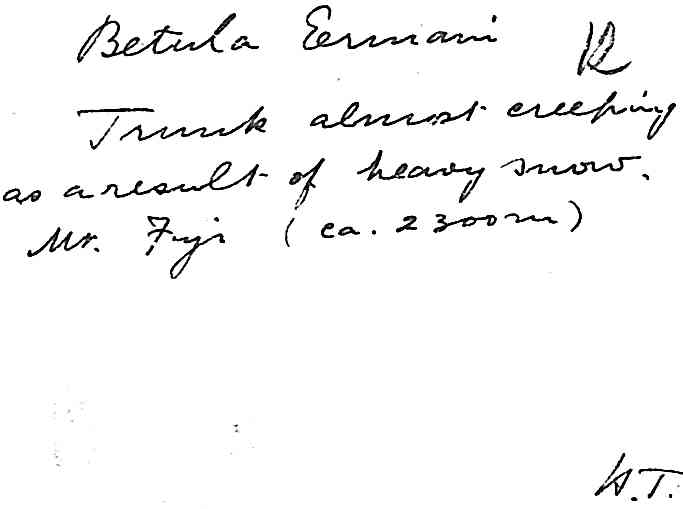 Betula Ermani R
Trunk almost creeping
as a result of heavy snow.
Mt. Fuji (ca. 2300m)
H.T.